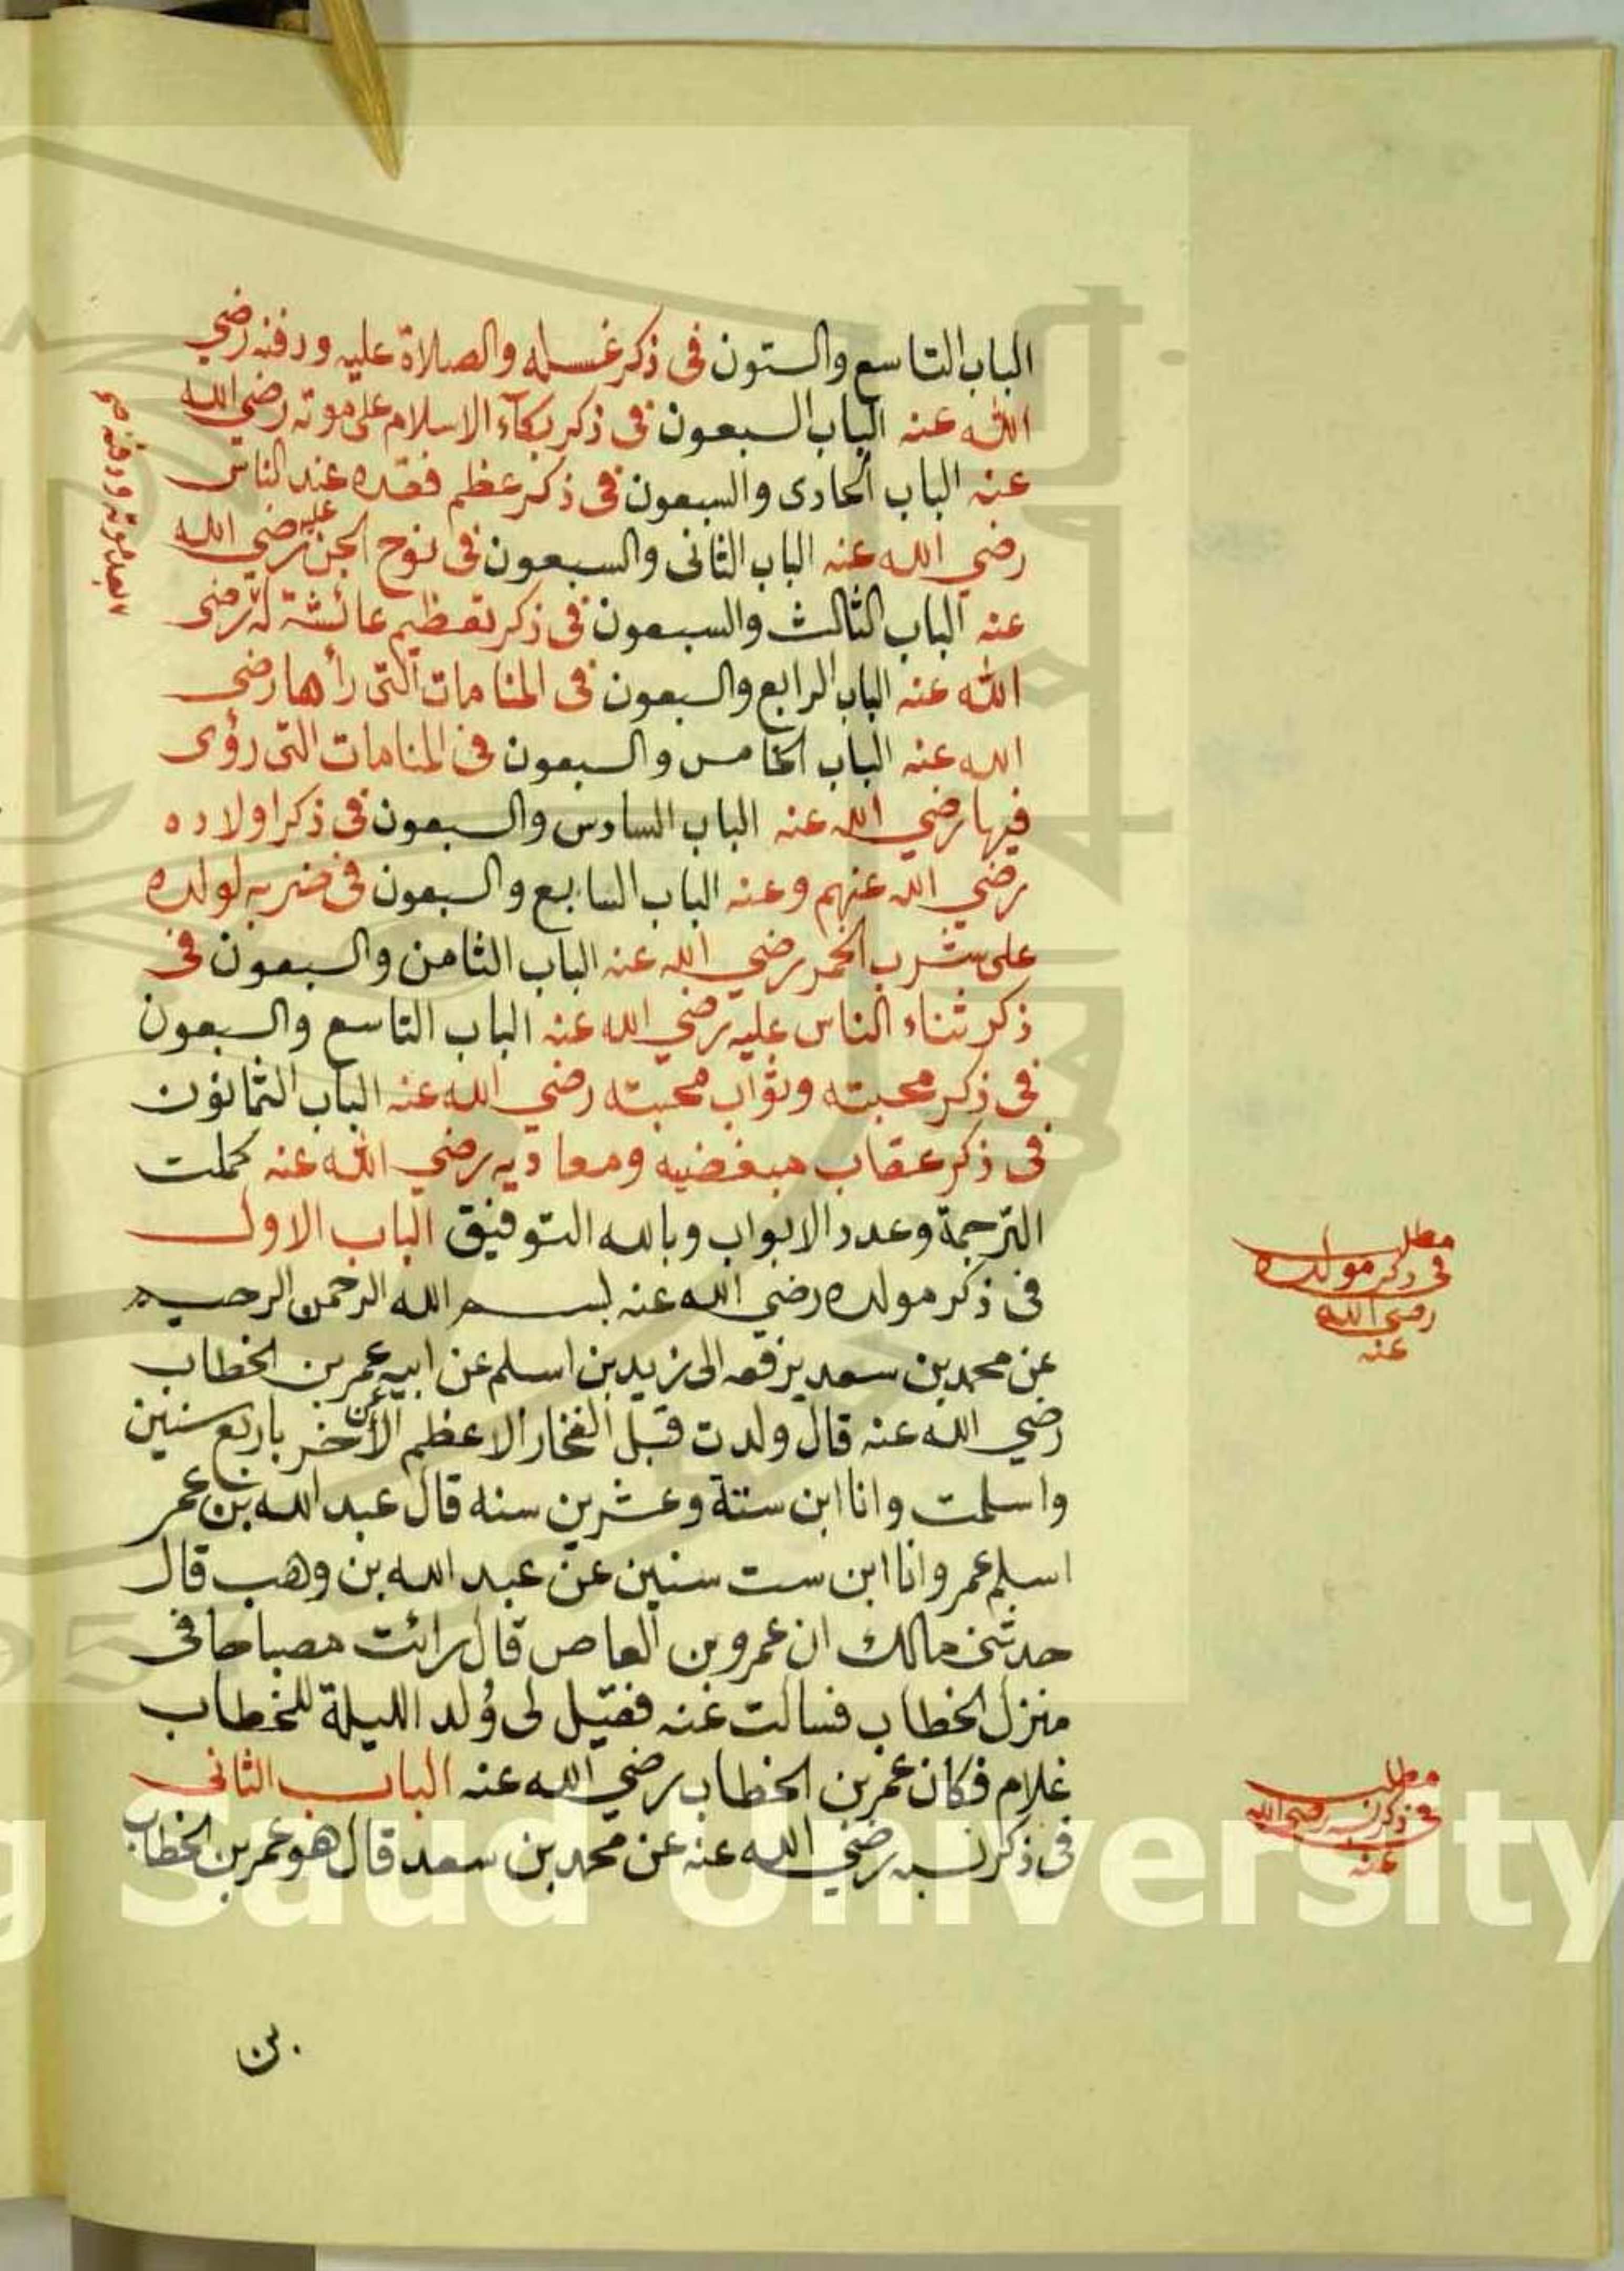 الباب التاسع والستون فى ذكر غسله والصلاة عليه ودفنه رضي
الله عنه الباب السبعون فى ذكر بكآء الاسلام على موته رضي الله
عنه الباب الحادى والسبعون فى ذكر عظم فقده عند الناس
رضي الله عنه الباب الثانى والسبعون فى نوح الجن عليه رضي الله
عنه الباب الثالث والسبعون فى ذكر تعظيم عائشة له رضى
الله عنه الباب الرابع والسبعون فى المنامات التى رأها رضى
الله عنه الباب الخامس والسبعون فى المنامات التى رؤى
فيها رضي الله عنه الباب السادس والسبعون فى ذكر اولاده
رضي الله عنهم وعنه الباب السابع والسبعون فى ضربه لولده
على شرب الخمر رضي الله عنه الباب الثامن والسبعون فى
ذكر ثناء الناس عليه رضي الله عنه الباب التاسع والسبعون
فى ذكر محبته وثواب محبته رضي الله عنه الباب الثمانون
فى ذكر عقاب مبغضيه ومعاديه رضي الله عنه كملت
الترجمة وعدد الابواب وبالله التوفيق الباب الاول
فى ذكر مولده رضي الله عنه بسم الله الرحمن الرحيم
عن محمد بن سعد يرفعه الى زيد بن اسلم عن ابيه عن عمر بن الخطاب
رضي الله عنه قال ولدت قبل الفخار الاعظم الأخر باربع سنين
واسلمت وانا ابن ستة وعشرين سنه قال عبد الله بن عمر
اسلم عمر وانا ابن ست سنين عن عبد الله بن وهب قال
حدثنى مالك ان عمرو بن العاص قال رائت مصباحا فى
منزل الخطاب فسالت عنه فقيل لى وُلد الليلة للخطاب
غلام فكان عمر بن الخطاب رضي الله عنه الباب الثانى
فى ذكر نسبه رضي الله عنه عن محمد بن سعد قال هو عمر بن الخطاب
بن
مطلب
فى ذكر مولده
رضى الله
عنه
مطلب
فى ذكر نسبه رضى الله
عنه
g Saud University